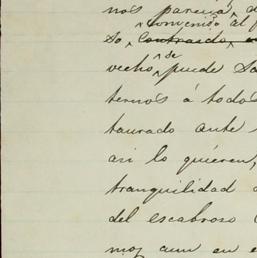 nos parecia, d
convenido al p
so, contraido,
se
vecho, puede sa
ternos á todos
taurado ante
asi lo quieren,
tranquilidad d
del escabroso
moz aun en e